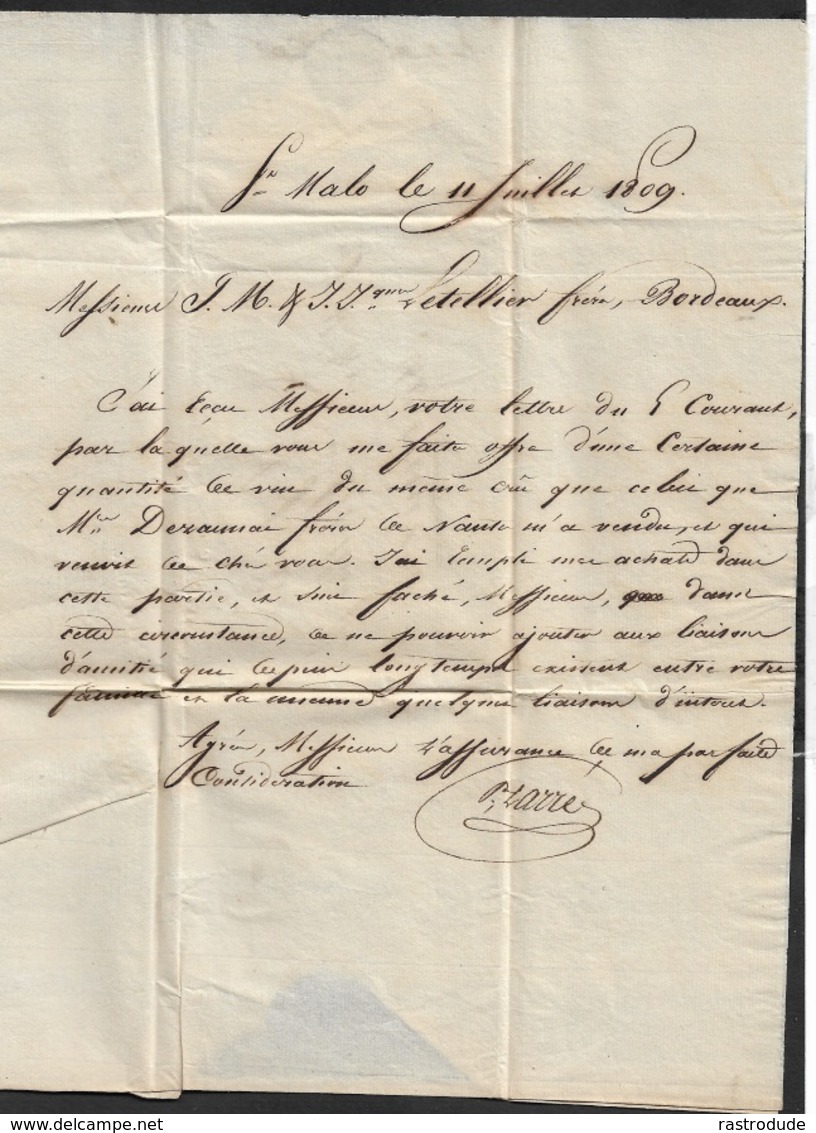 St Malo le 11 Juillet 1809.
Messieurs J. M. & J. Jques Letellier frères, Bordeaux.
J'ai reçu Messieurs, votre lettre du 5 Courant,
par la quelle vous me faite offre d'une Certaine
quantité de vin du même crû que celui que
Mrs Dezaunai frères de Nante m'a vendu, et qui
venoit de ché vous. J'ai rempli mes achats dans
cette partie, et suis faché, Messieurs, dans
cette circonstance, de ne pouvoir ajouter aux liaisons
d'amitié qui depuis longtemps existent entre votre
famille et la mienne quelques liaisons d'intérêt.
Agréez, Messieurs L'assurance de ma parfaite
Considération
delcampe.net
rastrodude